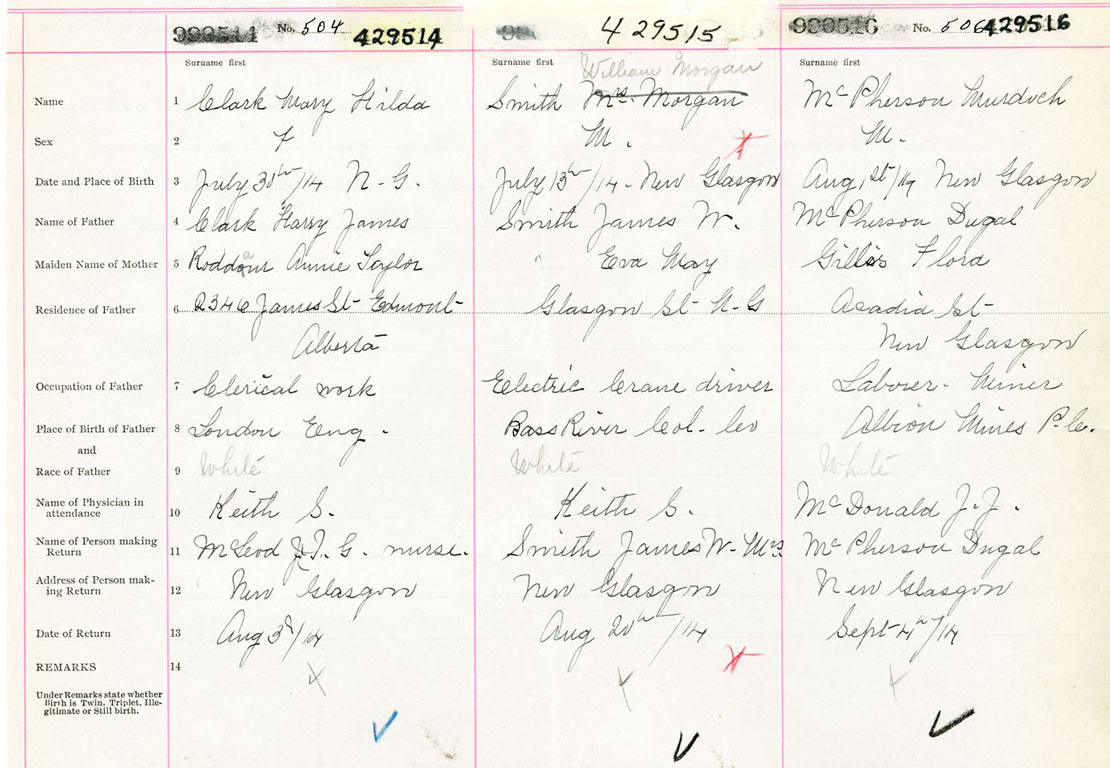 No. 504 429514
4 29515
No. 506 429516
Surname first Surname first William Morgan Surname first
Name 1 Clark Mary Hilda Smith Mrs. Morgan McPherson Murdoch
Sex 2 F M. M.
Date and Place of Birth 3 July 30th/14 N-G. July 13th/14 - New Glasgow Aug 1st/14 New Glasgow
Name of Father 4 Clark Harry James Smith James W. McPherson Dugal
Maiden Name of Mother 5 Annie Taylor " Eva May Gillis Flora
Residence of Father 6 2346 James St Edmont Glasgow St N-G Acadia St
Alberta New Glasgow
Occupation of Father 7 Clerical work Electric Crane driver Laborer - Miner
Place of Birth of Father 8 London Eng. Bass River Col. Co Albion Mines P. Co.
and
Race of Father 9 White White White
Name of Physician in
attendance 10 Keith S. Keith S. McDonald J. J.
Name of Person making
Return 11 McLeod G. nurse. Smith James W. Mrs McPherson Dugal
Address of Person mak-
ing Return 12 New Glasgow New Glasgow New Glasgow
Date of Return 13 Aug 3d/14 Aug 20th/14 Sept 4th/14
REMARKS 14
Under Remarks state whether
Birth is Twin, Triplet, Ille-
gitimate or Still birth.